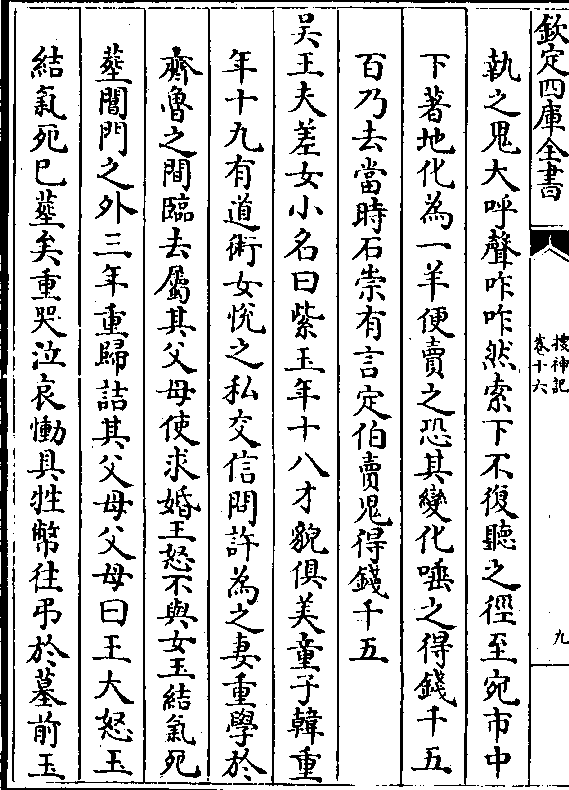 欽定四庫全書
搜神記
卷十六
九
執之鬼大呼聲咋咋然索下不復聽之徑至宛市中
下著地化為一羊便賣之恐其變化唾之得錢千五
百乃去當時石崇有言定伯賣鬼得錢千五
吴王夫差女小名曰紫玉年十八才貌俱美童子韓重
年十九有道術女悅之私交信問許為之妻重學於
齊魯之間臨去屬其父母使求婚王怒不與女玉結氣死
葬閶門之外三年重歸詰其父母父母曰王大怒玉
結氣死已葬矣重哭泣哀慟具牲幣往弔於墓前玉